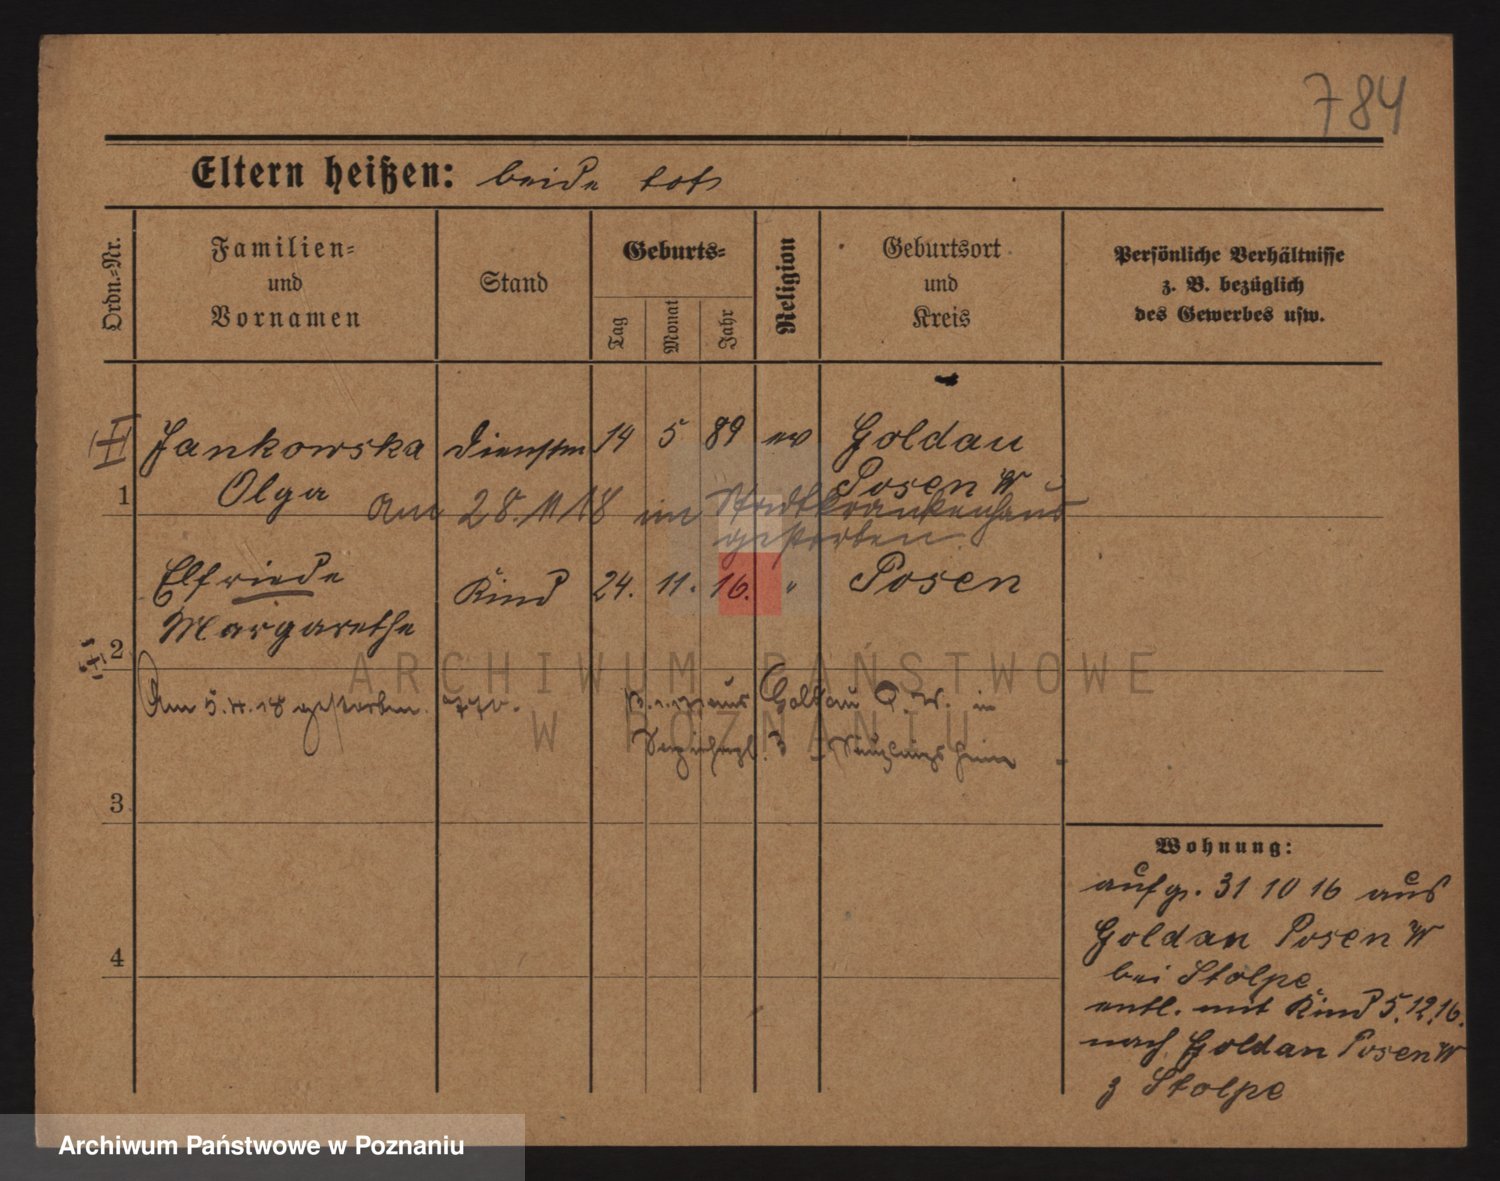 784
Eltern heißen: beide tot
Ordn.=Nr.
Familien=
und
Vornamen
Stand
Geburts=
Tag
Monat
Jahr
Religion
Geburtsort
und
Kreis
Persönliche Verhältnisse
z. B. bezüglich
des Gewerbes usw.
1
Jankowska
Olga
Dienstm
14 5 89
ev
Goldau
Posen W
am 28. 11 18 im Stadtkrankenhaus
gestorben.
2
Elfriede
Margarethe
Kind
24. 11. 16.
"
Posen
Am 5. 4. 18 gestorben. aus Goldau P. W. in
Säuglingsheim
3
4
Wohnung:
aufg. 31 10 16 aus
Goldau Posen W
bei Stolpe
entl. mit Kind 5.12.16.
nach Goldau Posen W
z Stolpe
ARCHIWUM PAŃSTWOWE
W POZNANIU
Archiwum Państwowe w Poznaniu